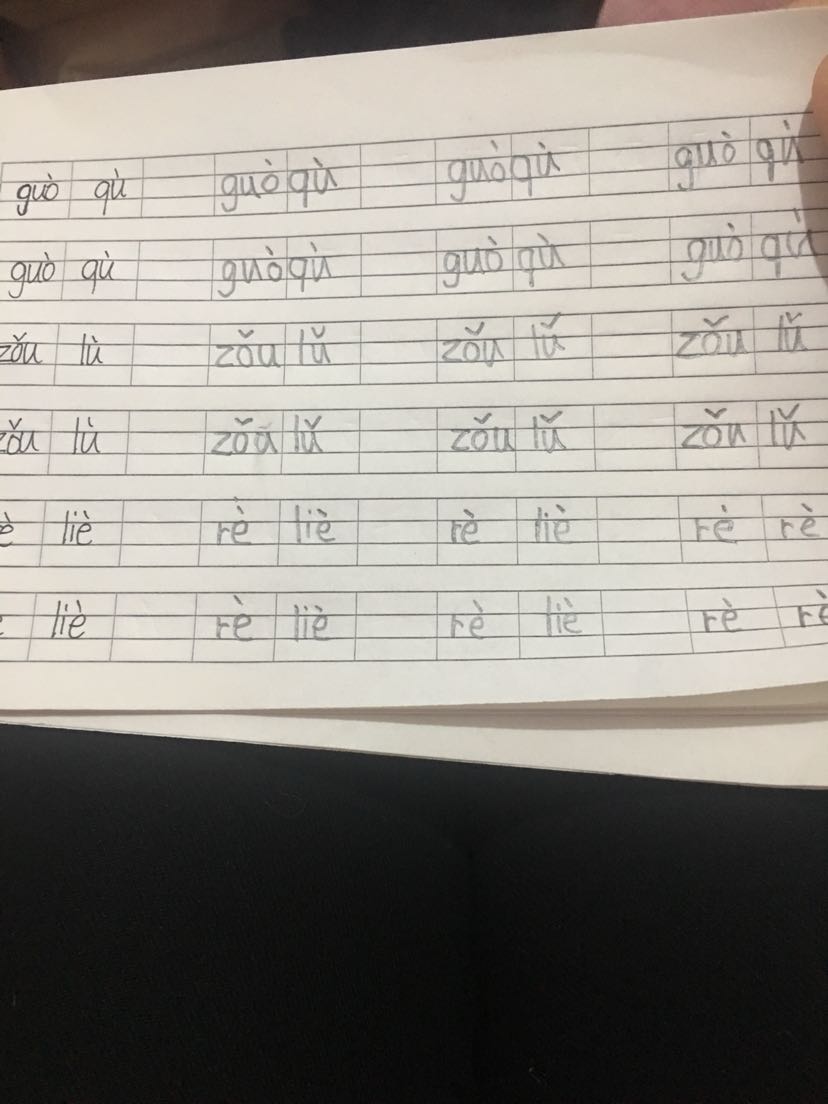 guò qù guò qù guò qù guò qù
guò qù guò qù guò qù guò qù
zǒu lù zǒu lǔ zǒu lǔ zǒu lǔ
zǒu lù zǒu lǔ zǒu lǔ zǒu lǔ
liè rè liè rè liè rè rè
liè rè liè rè liè rè rè